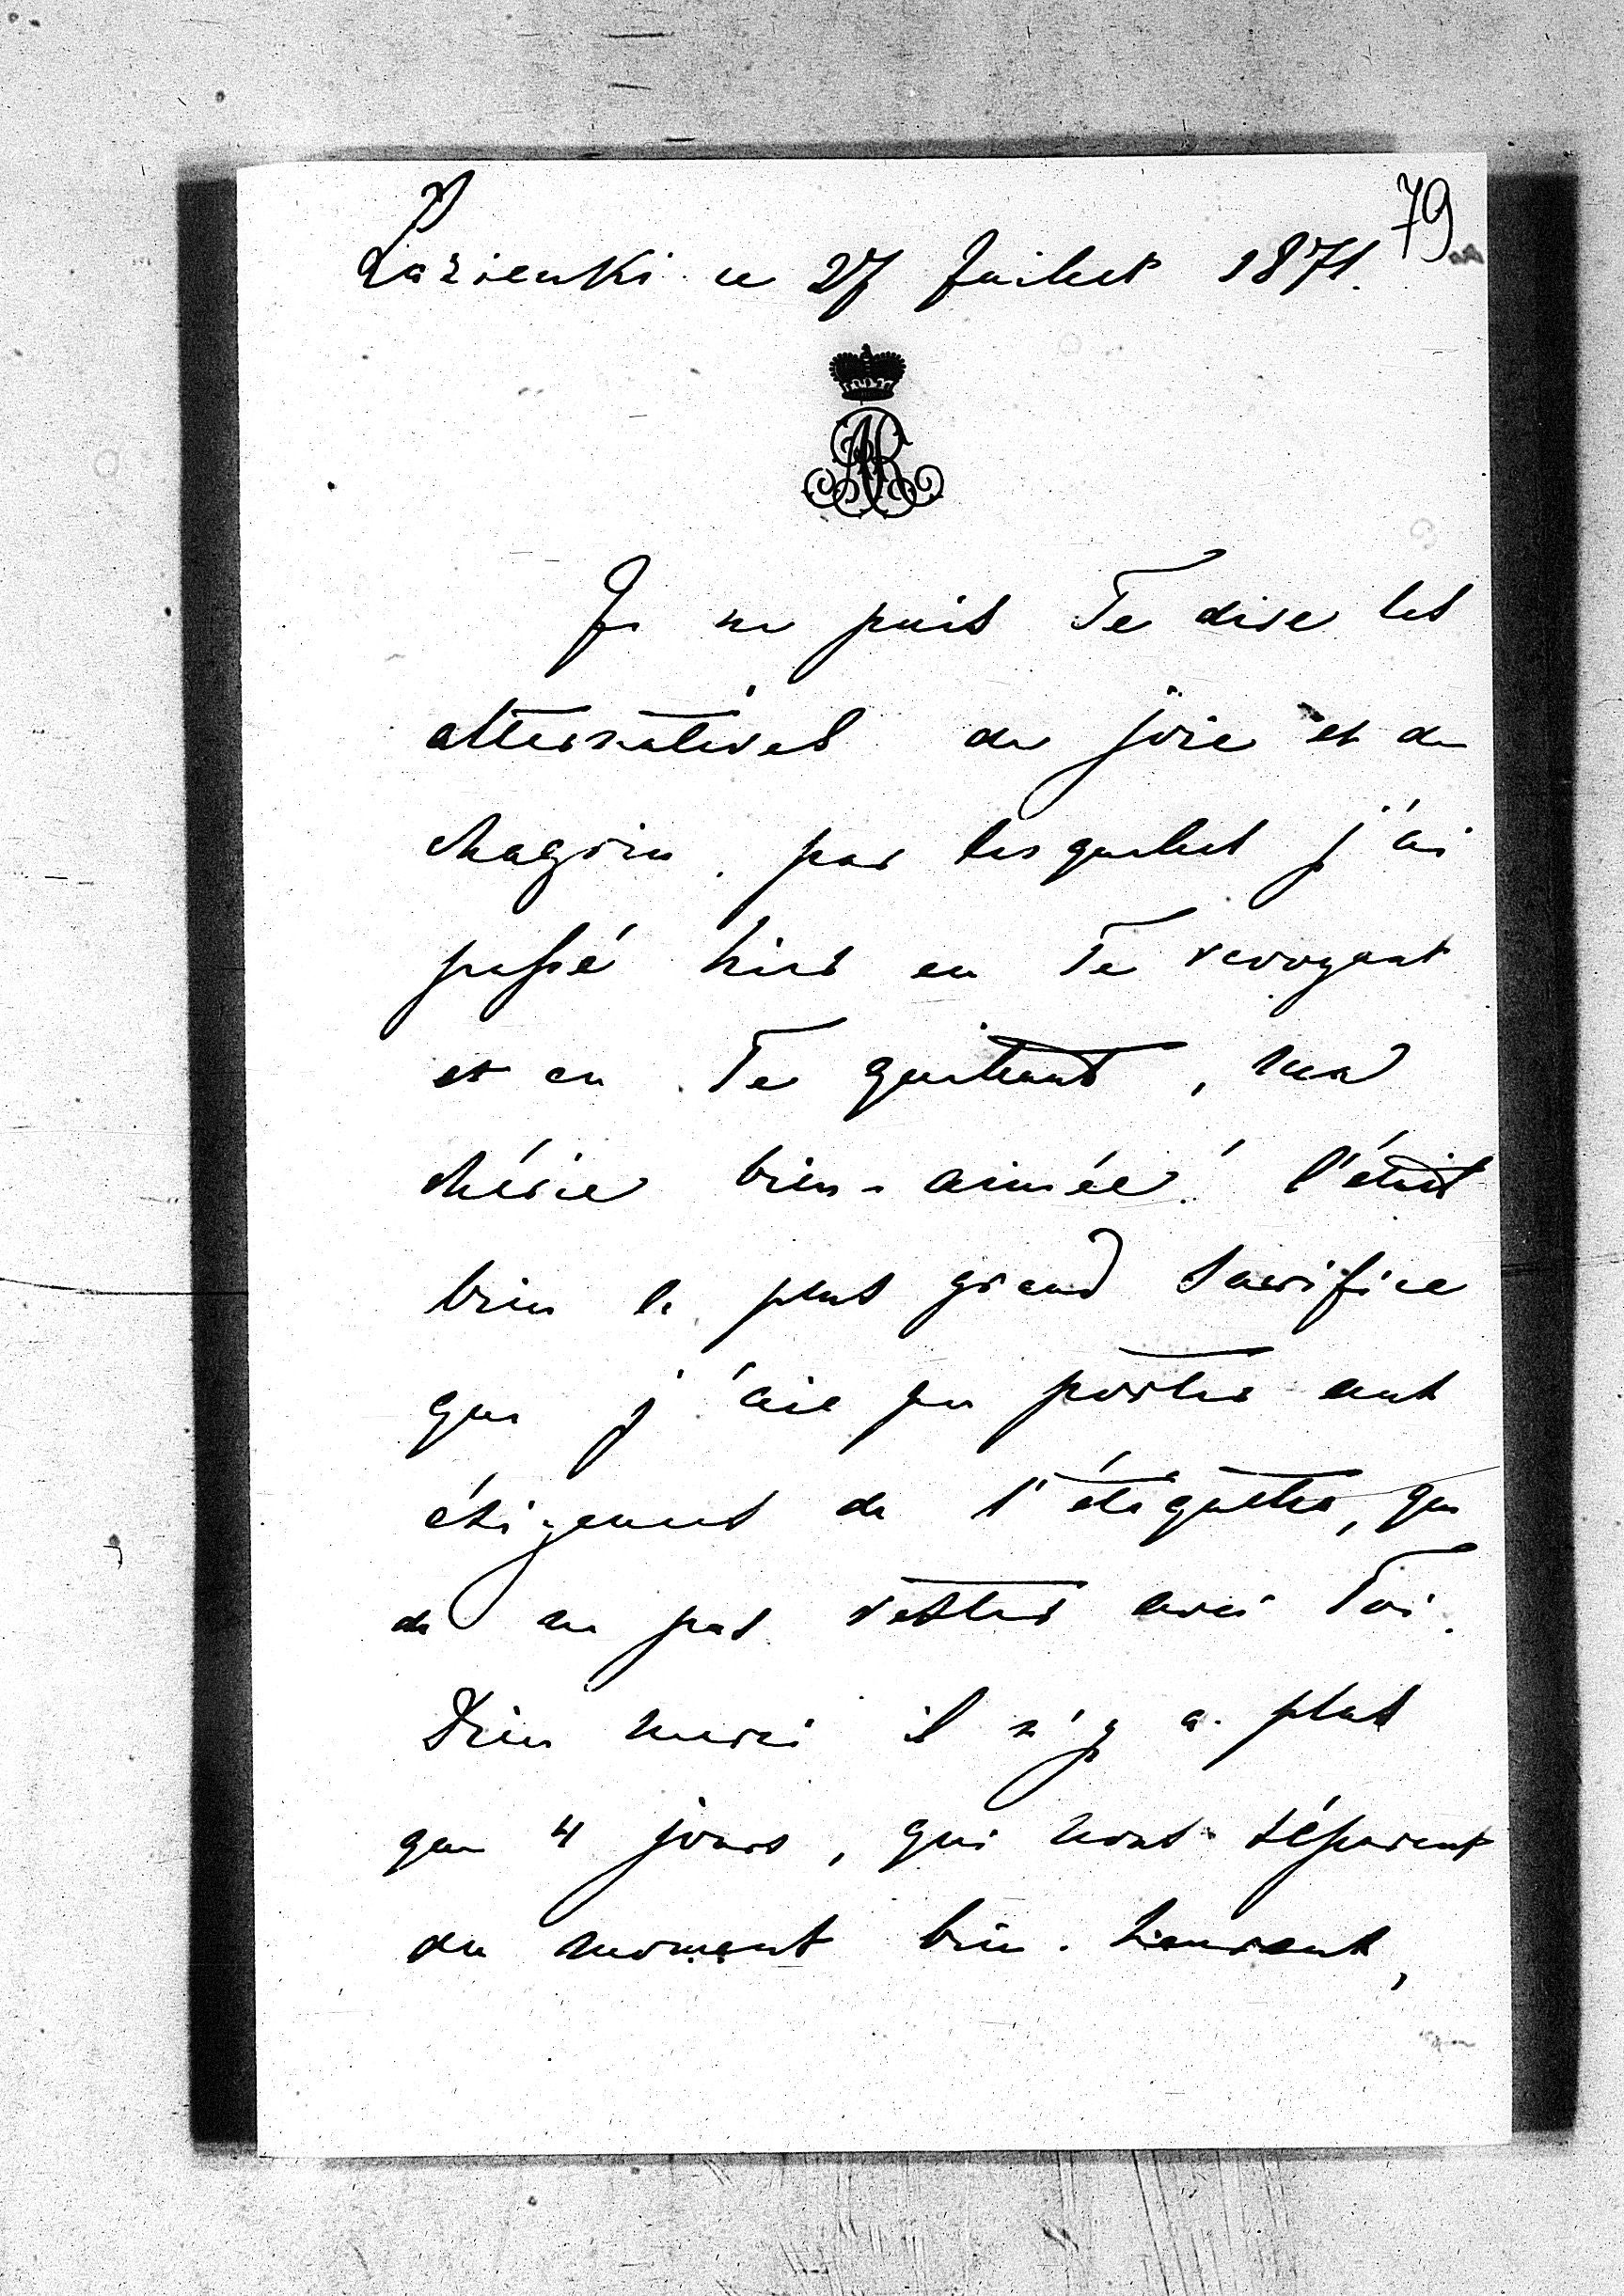 79
Lazienki ce 27 Juillet 1871.
AR
Je ne puis Te dire les
alternatives de joie et de
chagrin par lesquelles j'ai
passé hier en Te revoyant
et en Te quittant, ma
chérie bien-aimée! C'était
bien le plus grand sacrifice
que j'aie pu porter aux
éxigences de l'étiquette, que
de ne pas rester avec Toi.
Dieu merci il n'y a plus
que 4 jours, qui nous séparent
du moment bien-heureux,